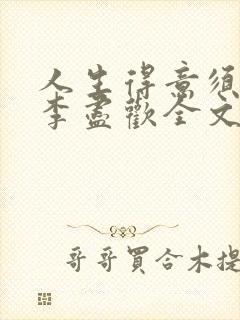 人生得意須
李盡歡全文
哥哥買合木提